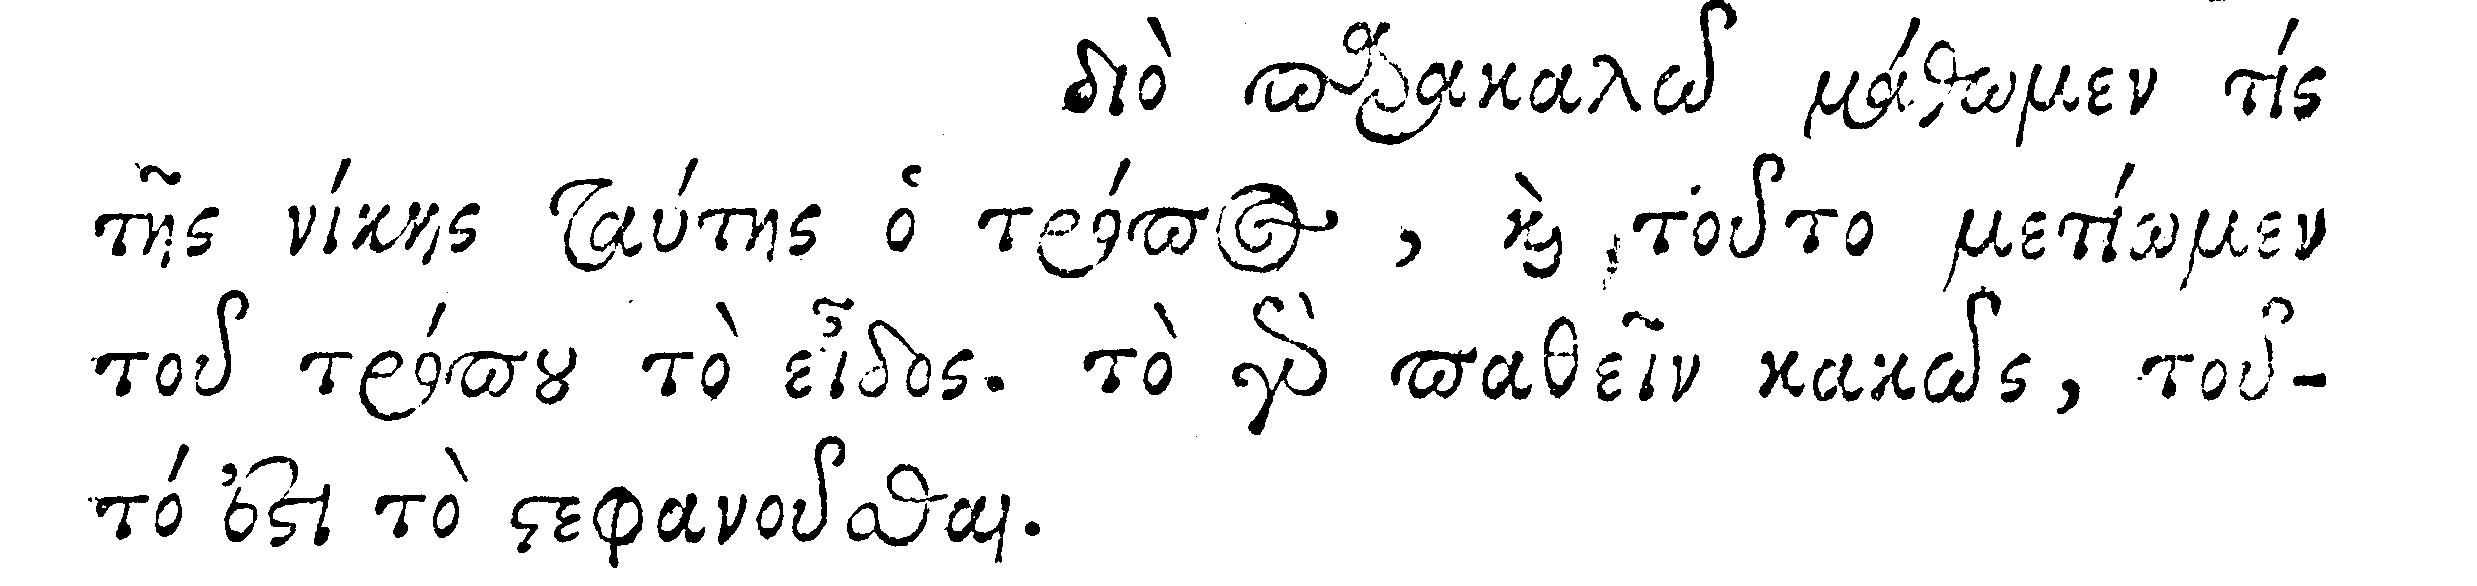 διὸ παρακαλῶ μάθωμεν τίς
τῆς νίκης ταύτης ὁ τρόπος, καὶ τοῦτο μετίωμεν
τοῦ τρόπου τὸ εἶδος. τὸ γὰρ παθεῖν κακῶς, τοῦ-
τό ἐστι τὸ στεφανοῦσθαι.